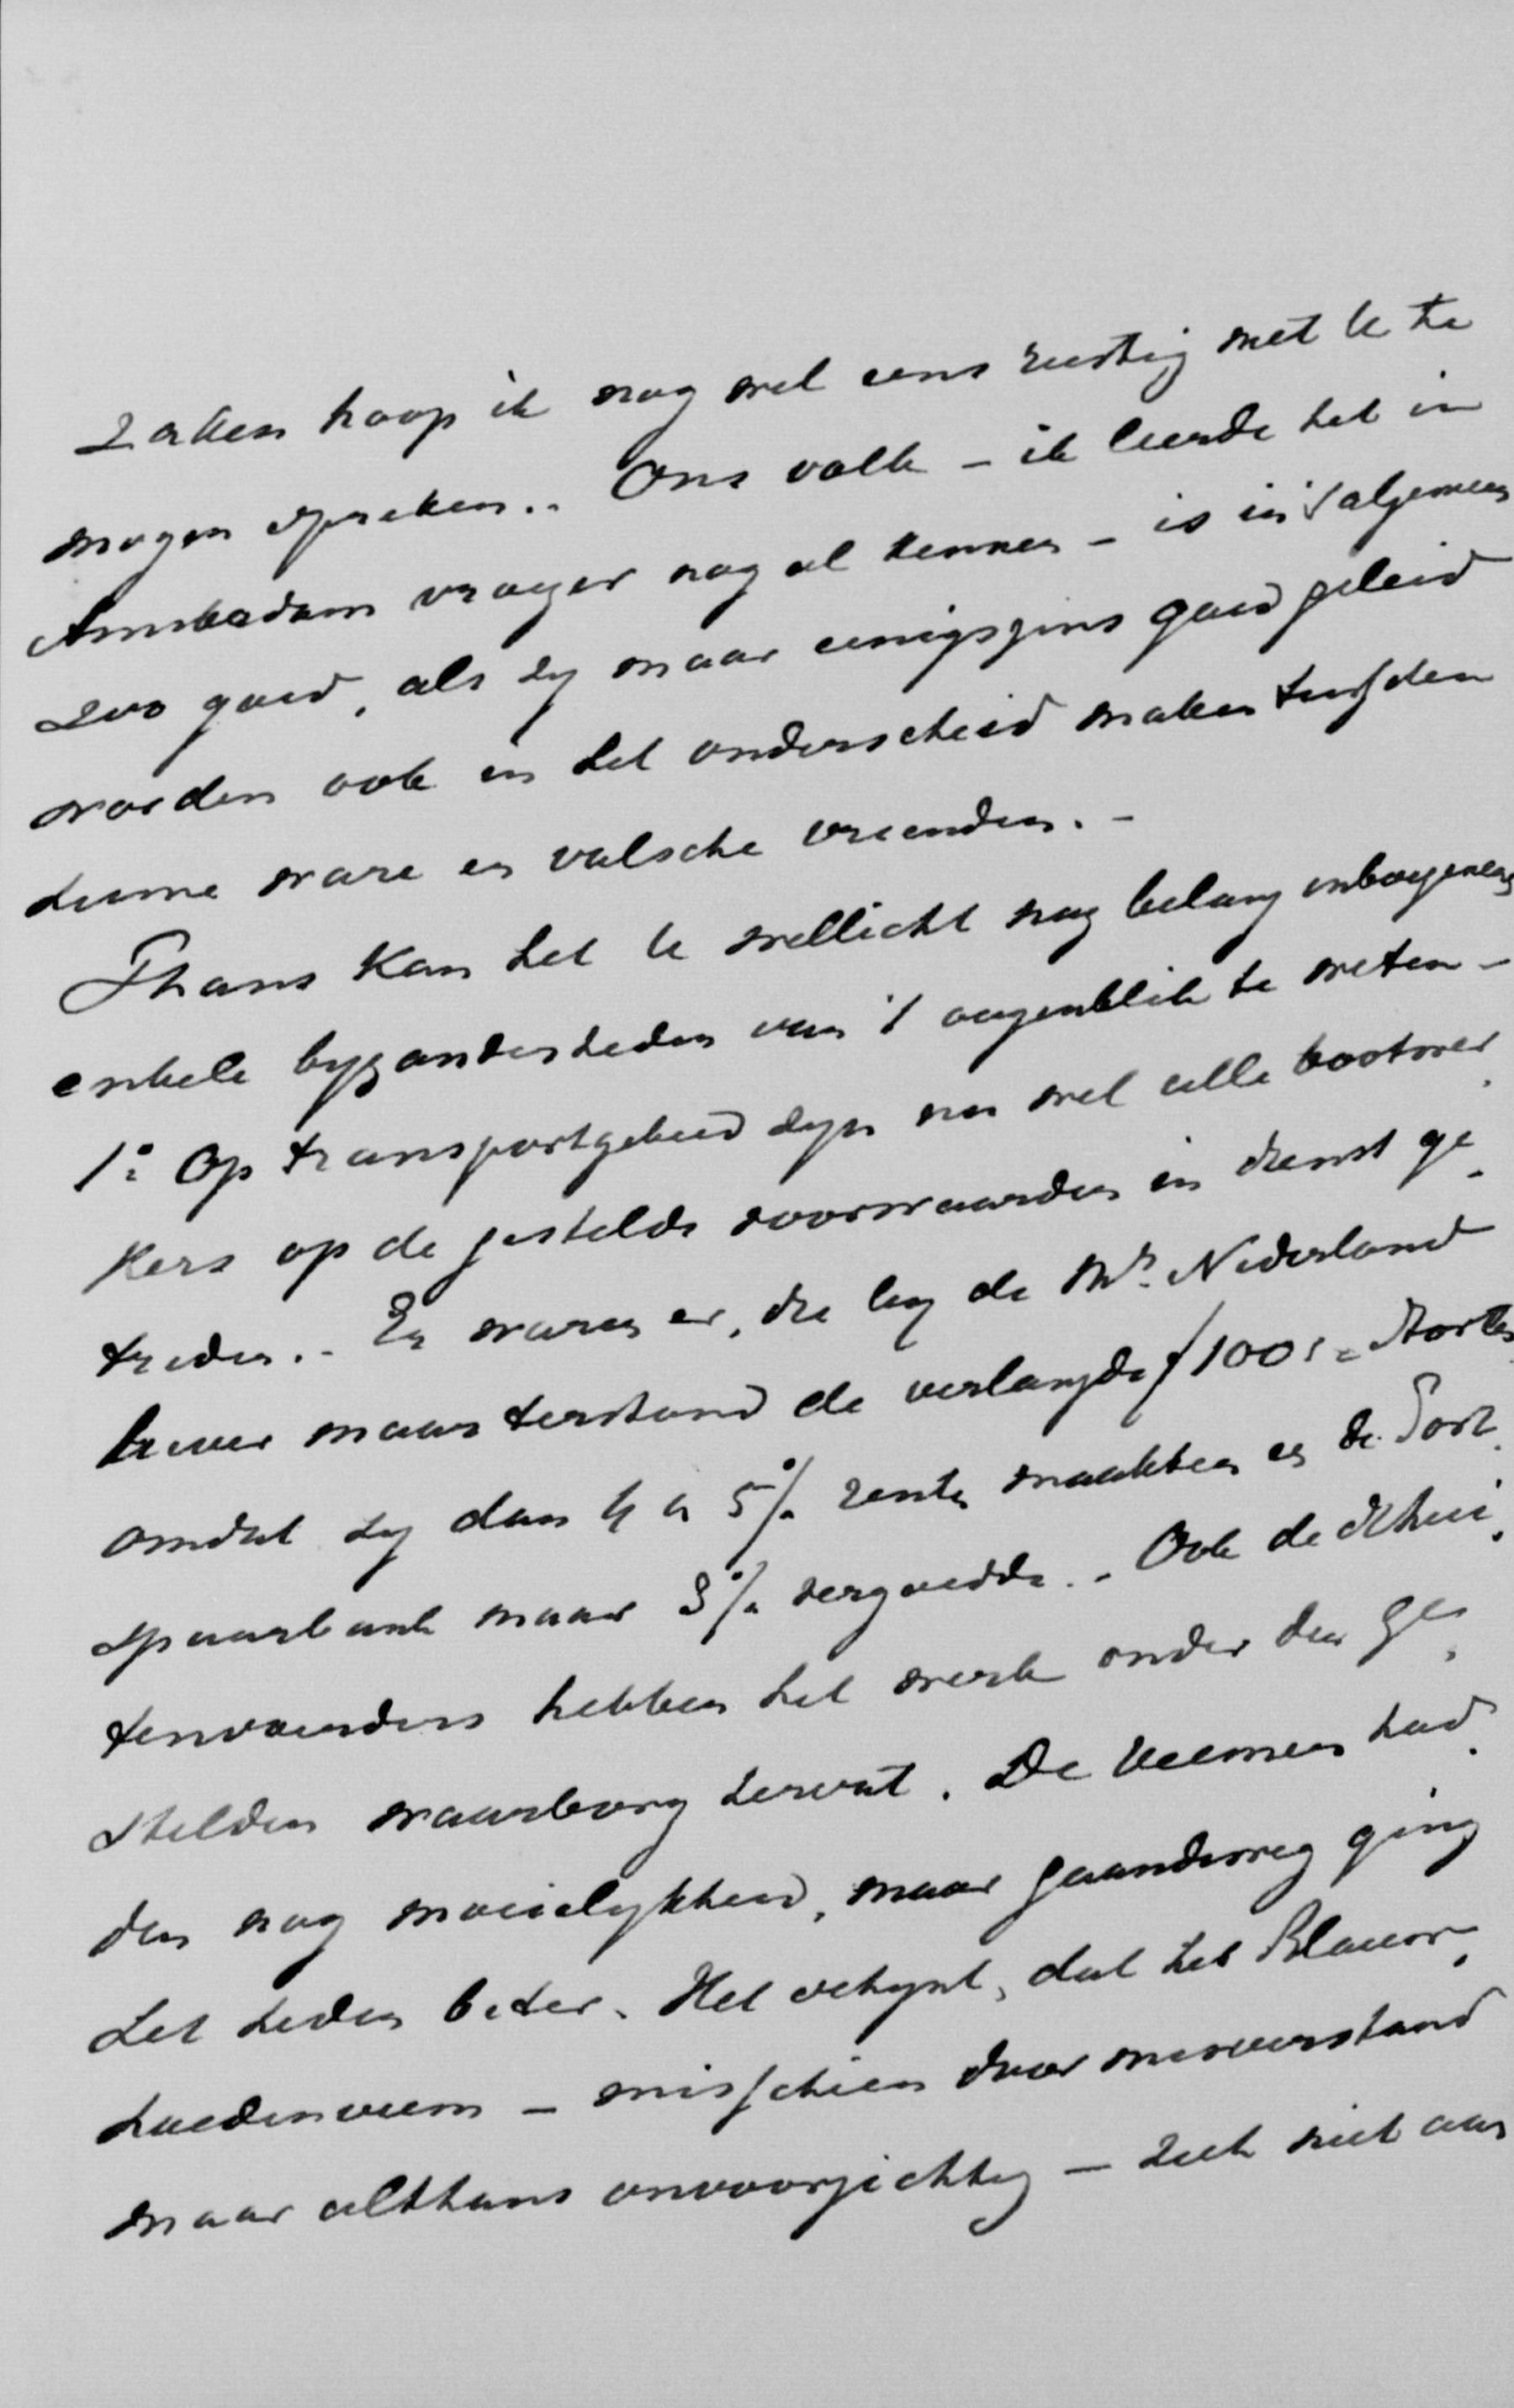 zaken hoop ik nog wel eens rustig met U te
mogen spreken.. Ons volk – ik leerde het in
Amsterdam vroeger nog al kennen – is in 't algemeen
zoo goed, als zy maar eenigszins goed geleid
worden ook in het onderscheid maken tusschen
hunne ware en valsche vrienden. –
Thans kan het U wellicht nog belang inboezemen
enkele byzonderheden van 't oogenblik te weten –
1o Op transportgebied zyn nu wel alle bootwer
kers op de gestelde voorwaarden in dienst ge
treden. – Er waren er, die by de My Nederland
liever maar terstond de verlangde f 100,= stortten
omdat zy dan 4 à 5% rente maakten en de Post
spaarbank maar 3% vergoedde. – Ook de schui
tenvoerders hebben het werk onder den ge
stelden waarborg hervat. De veemen had
den nog moeielykheid, maar gaandeweg ging
het heden beter. Het schynt, dat het Blauw
hoedenveem – misschien door misverstand
maar althans onvoorzichtig – zich niet aan